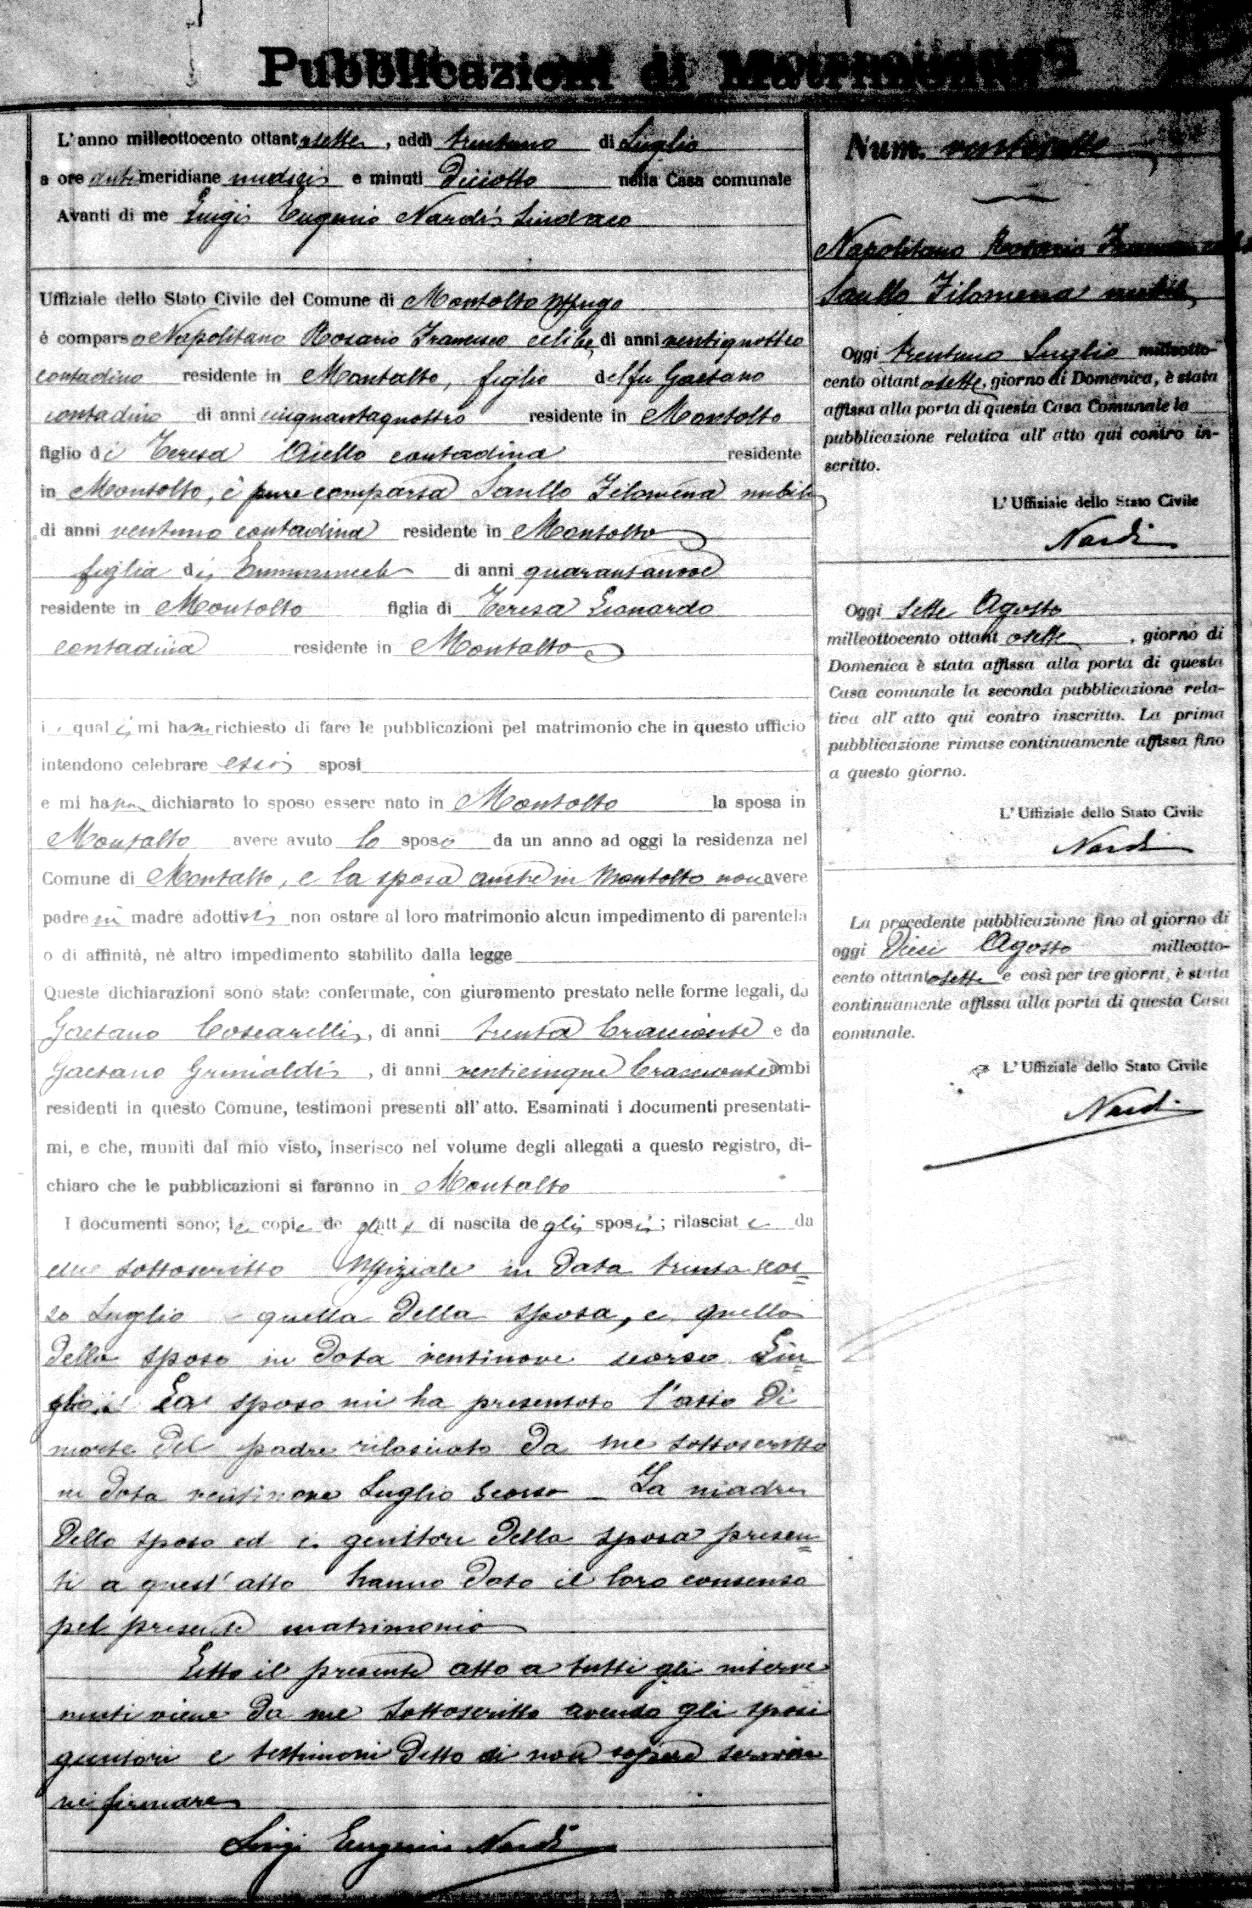 Pubblicazioni di Matrimonio
L'anno milleottocento ottantasette, addì trentuno di Luglio
a ore antimeridiane undici e minuti diciotto nella Casa comunale
Avanti di me Luigi Eugenio Nardi Sindaco
Uffiziale dello Stato Civile del Comune di Montalto Uffugo
è comparso Napolitano Rosario Francesco celibe, di anni ventiquattro
contadino residente in Montalto, figlio del fu Gaetano
contadino di anni cinquantaquattro residente in Montalto
figlio di Teresa Aiello contadina residente
in Montalto, è pure comparsa Saullo Filomena nubile
di anni ventuno contadina residente in Montalto
figlia di Emmanuele di anni quarantanove
residente in Montalto figlia di Teresa Leonardo
contadina residente in Montalto
i quali mi han richiesto di fare le pubblicazioni pel matrimonio che in questo ufficio
intendono celebrare essi sposi
e mi han dichiarato lo sposo essere nato in Montalto la sposa in
Montalto avere avuto lo sposo da un anno ad oggi la residenza nel
Comune di Montalto, e la sposa anche in Montalto non avere
padre nè madre adottivi, non ostare al loro matrimonio alcun impedimento di parentela
o di affinità, nè altro impedimento stabilito dalla legge
Queste dichiarazioni sono state confermate, con giuramento prestato nelle forme legali, da
Gaetano Coscarelli, di anni trenta bracciante e da
Gaetano Grimaldi, di anni venticinque bracciante ambi
residenti in questo Comune, testimoni presenti all'atto. Esaminati i documenti presentati-
mi, e che, muniti dal mio visto, inserisco nel volume degli allegati a questo registro, di-
chiaro che le pubblicazioni si faranno in Montalto
I documenti sono; le copie de gli atti di nascita degli sposi; rilasciate da
me sottoscritto Uffiziale in data trenta scor=
so Luglio quella della sposa, e quella
dello sposo in data ventinove scorso Lu=
glio. Lo sposo mi ha presentato l'atto di
morte del padre rilasciato da me sottoscritto
in data ventinove Luglio scorso _ La madre
dello sposo ed i genitori della sposa presen=
ti a quest'atto hanno dato il loro consenso
pel presente matrimonio
Letto il presente atto a tutti gli interve
nuti viene da me sottoscritto avendo gli sposi
genitori e testimoni detto di non sapere scrivere
nè firmare
Luigi Eugenio Nardi
Num. ventisette
Napolitano Rosario Francesco
Saullo Filomena nubile
Oggi trentuno Luglio milleotto-
cento ottantasette, giorno di Domenica, è stata
affissa alla porta di questa Casa Comunale la
pubblicazione relativa all'atto qui contro in-
scritto.
L'Uffiziale dello Stato Civile
Nardi
Oggi sette Agosto
milleottocento ottantasette, giorno di
Domenica è stata affissa alla porta di questa
Casa comunale la seconda pubblicazione rela-
tiva all'atto qui contro inscritto. La prima
pubblicazione rimase continuamente affissa fino
a questo giorno.
L'Uffiziale dello Stato Civile
Nardi
La precedente pubblicazione fino al giorno di
oggi dieci Agosto milleotto-
cento ottantasette e così per tre giorni, è stata
continuamente affissa alla porta di questa Casa
comunale.
L'Uffiziale dello Stato Civile
Nardi